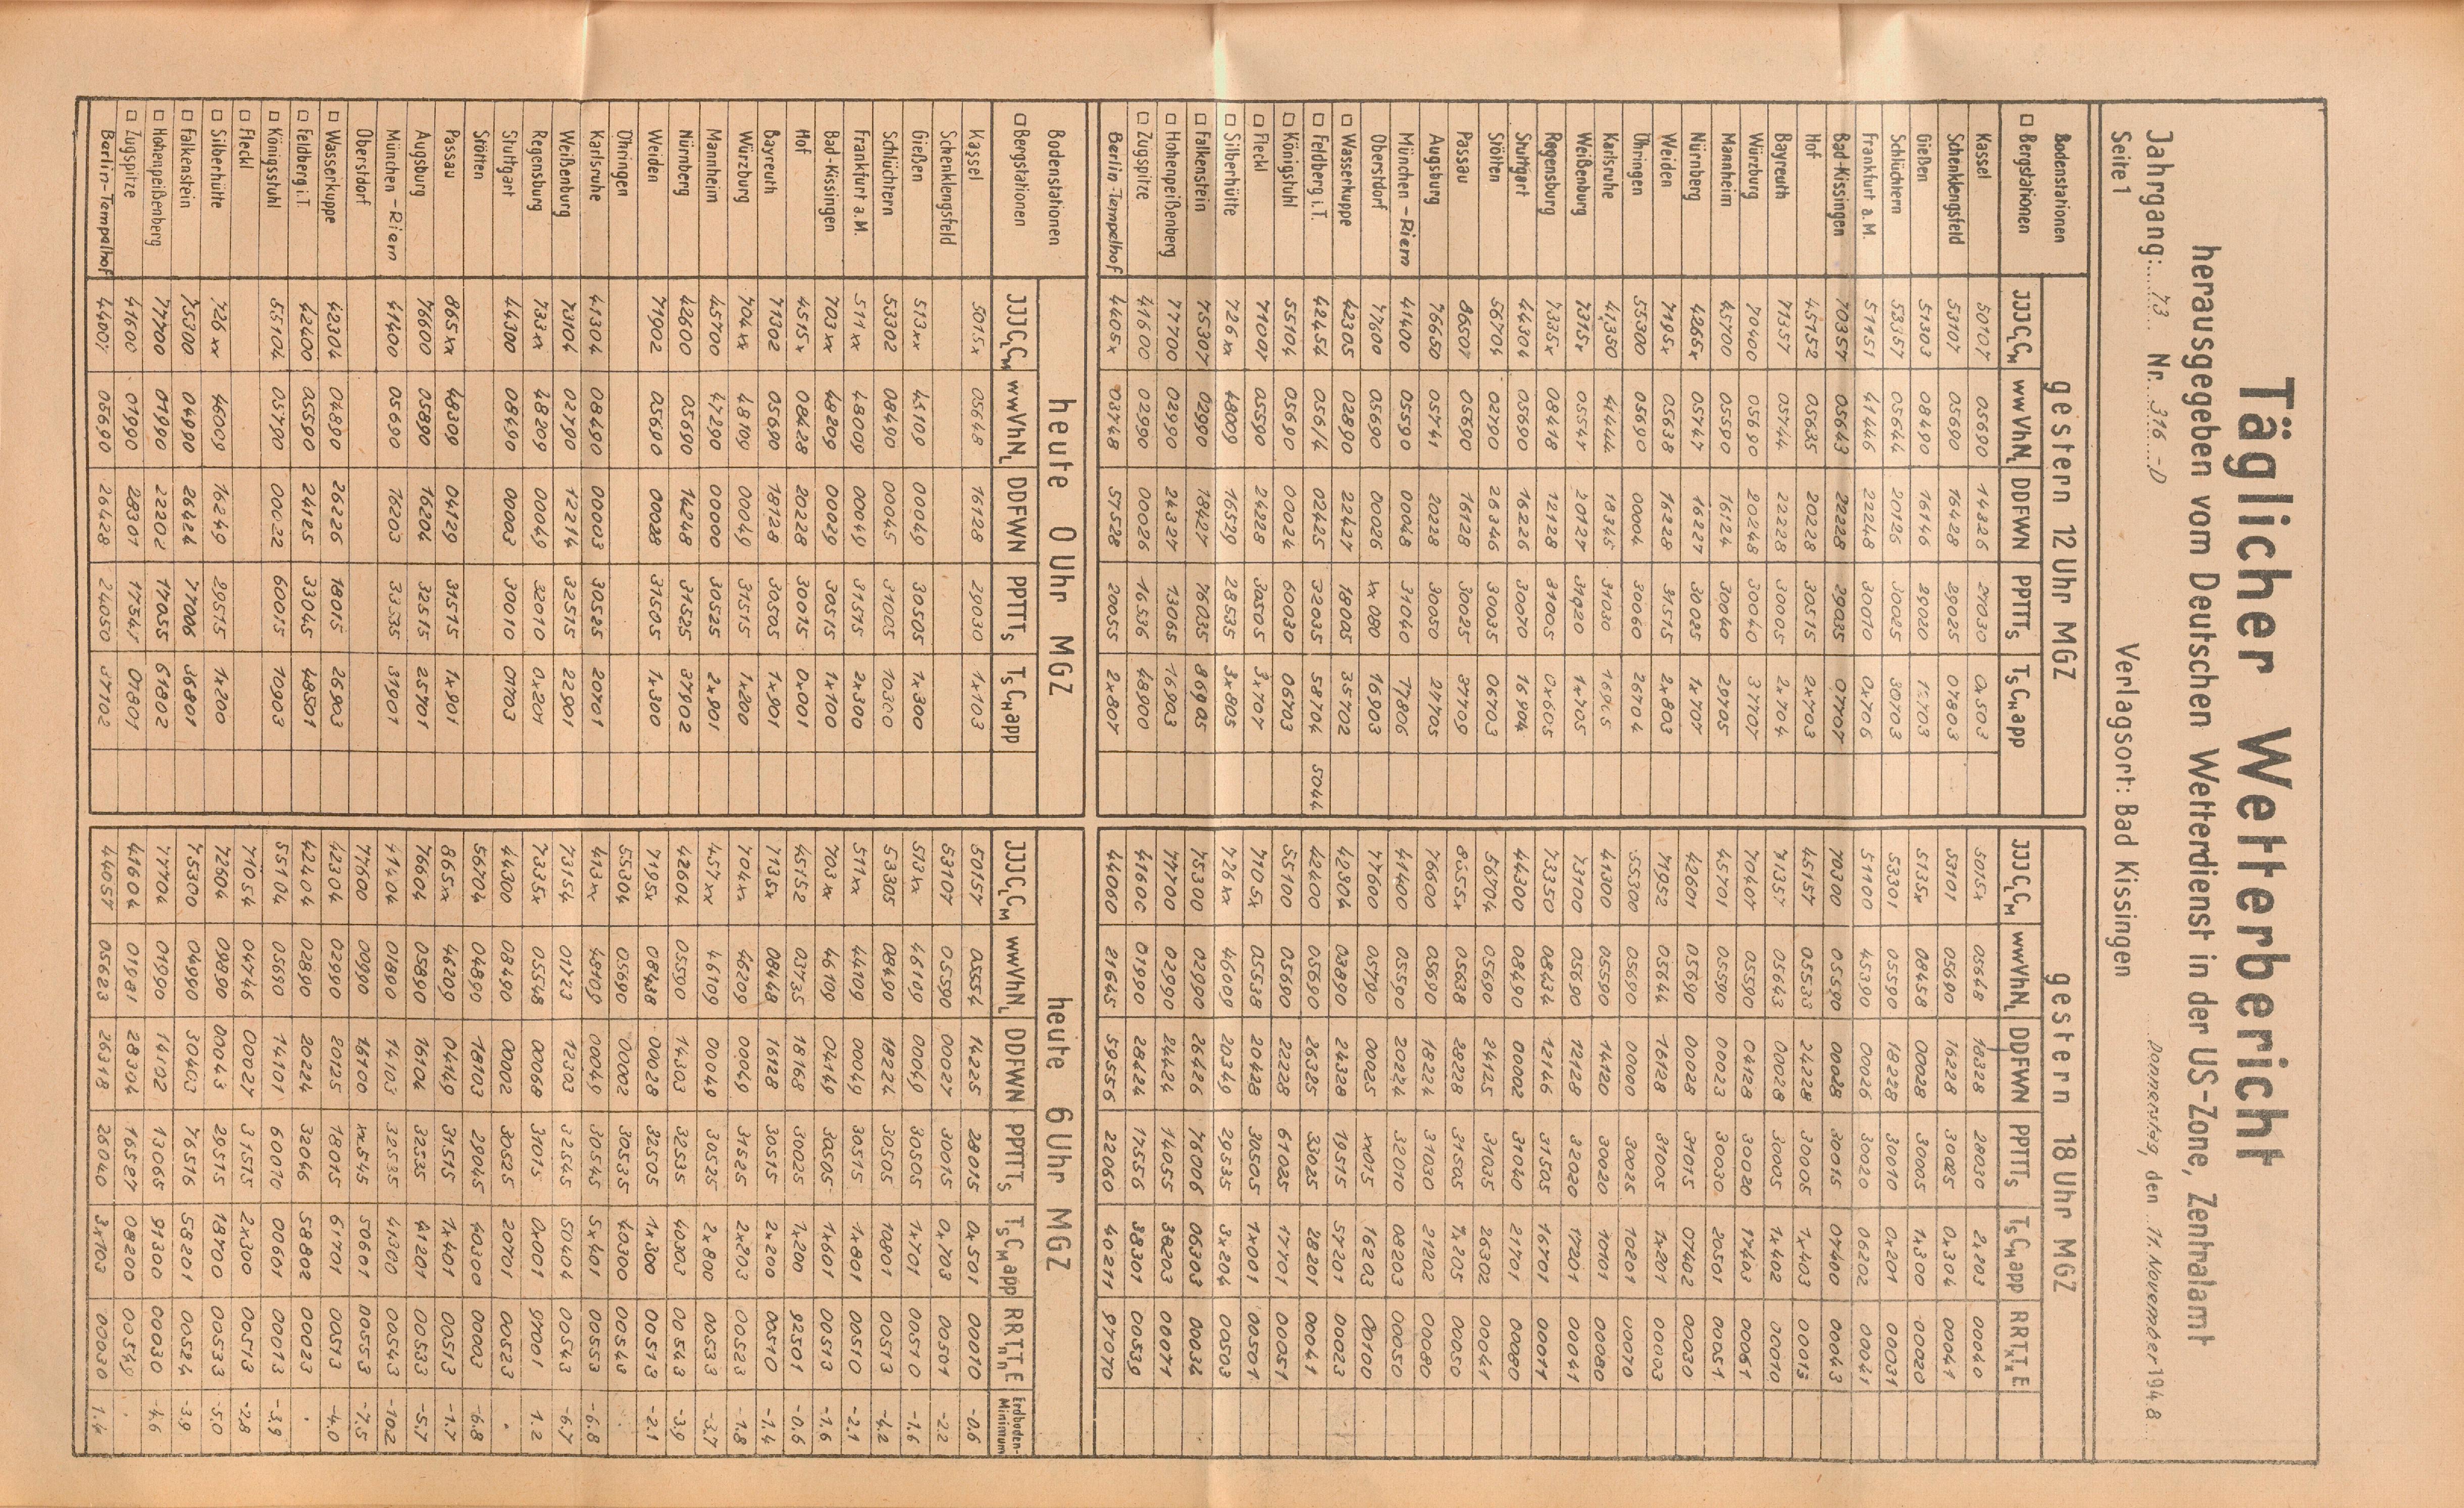 Täglicher Wetterbericht
herausgegeben vom Deutschen Wetterdienst in der US-Zone, Zentralamt
Jahrgang: 73 Nr. 316.-D Verlagsort: Bad Kissingen Donnerstag, den 11. November 1948
Seite 1
Bodenstationen gestern 12 Uhr MGZ gestern 18 Uhr MGZ
□ Bergstationen JJJCLCM wwVhNL DDFWN PPTTTS TSCHapp JJJCLCM wwVhNL DDFWN PPTTTS TSCHapp RRTxTxE
Kassel 50107 05690 14326 27030 0x503 5015x 05648 18328 28030 2x203 00040
Schenklengsfeld 53107 05690 16428 29025 07803 53101 05690 16228 30025 0x304 00041
Gießen 51303 08490 16146 29020 5135x 08458 00028 30005 1x300 00020
Schlüchtern 53357 05644 20126 30025 30703 53301 05590 18228 30010 0x201 00031
Frankfurt a.M. 51151 41446 22248 30070 0x706 51100 45390 00026 30020 06202 00041
Bad-Kissingen 70357 05643 22228 29035 07707 70300 05590 00028 30015 07400 00043
Hof 45152 05635 20228 30515 2x703 45157 05533 24228 30005 1x403 00013
Bayreuth 71357 05744 22228 30005 2x704 71357 05643 00028 30005 1x402 00010
Würzburg 70400 05690 20248 30040 37707 70407 05590 04128 30020 17403 00061
Mannheim 45700 05590 16124 30040 29705 45701 05590 00023 30030 20501 00051
Nürnberg 4266x 05747 16227 30025 1x707 42601 05690 00028 31015 07402 00030
Weiden 7195x 05638 16228 31515 2x803 71952 05644 16128 31005 1x201 00003
Öhringen 55300 05690 00004 30060 26704 55300 05690 00000 30025 10201 00070
Karlsruhe 41350 41444 18345 31030 16905 41300 05590 14120 30020 10701 00080
Weißenburg 7315x 05547 20127 31020 1x705 73100 05690 12128 32020 17201 00041
Regensburg 7335x 08418 12128 31005 0x605 73350 08434 12146 31505 16701 00011
Stuttgart 44304 05690 16226 30070 16904 44300 08490 00002 31040 21701 00080
Stötten 56704 02790 26346 30035 06703 56704 05690 24125 31035 26302 00041
Passau 86507 05690 16128 30025 37709 8655x 05638 28228 31505 1x205 00050
Augsburg 76650 05741 20228 30050 27705 76600 05690 18224 31030 21202 00080
München-Riem 41400 05590 00048 31040 77806 41400 05590 20224 32010 08203 00050
Oberstdorf 77600 05690 00026 xx080 16903 77600 05790 00025 xx015 16203 00100
□ Wasserkuppe 42305 02890 22427 18005 35702 42304 03890 24328 19515 57201 00023
□ Feldberg i.T. 42454 05614 02425 32035 58704 5044 42400 05690 26325 33025 28201 00041
□ Königstuhl 55104 05690 00024 60030 06703 55100 05690 22228 61035 17701 00051
□ Fleckl 71007 05590 24228 30505 3x707 7105x 05538 20428 30505 1x001 00501
□ Silberhütte 726xx 48009 16529 28535 3x805 726xx 46609 20349 29535 3x204 00503
□ Falkenstein 75307 02990 18427 76035 86905 75300 02990 26426 76006 06303 00032
□ Hohenpeißenberg 77700 02990 24327 13065 16903 77700 02990 24424 14055 38203 00071
□ Zugspitze 41600 02990 00026 16536 48000 41600 01990 28424 17556 38301 00539
Berlin-Tempelhof 4405x 03748 57528 20055 2x807 44060 21645 59556 22060 40211 97070
Bodenstationen heute 0 Uhr MGZ heute 6 Uhr MGZ
□ Bergstationen JJJCLCM wwVhNL DDFWN PPTTTS TSCHapp JJJCLCM wwVhNL DDFWN PPTTTS TSCHapp RRTnTnE Erdboden-Minimum
Kassel 5015x 05648 16128 29030 1x103 50157 05554 14225 28015 0x501 00010 -0.6
Schenklengsfeld 53107 05590 00027 30015 0x703 00501 -2.2
Gießen 513xx 45109 00049 30505 1x300 513xx 46109 00049 30505 1x701 00510 -1.6
Schlüchtern 53302 08490 00045 31005 10300 53305 08490 18224 30505 10801 00513 -4.2
Frankfurt a.M. 511xx 48009 00049 31515 2x300 511xx 44109 00049 30515 1x801 00510 -2.1
Bad-Kissingen 703xx 48209 00029 30515 1x100 703xx 46109 04149 30505 1x601 00513 -1.6
Hof 4515x 08428 20228 30015 0x001 45152 03735 18168 30025 1x200 92501 -0.6
Bayreuth 71302 05690 18128 30505 1x901 7135x 08448 16128 30515 2x200 00510 -1.4
Würzburg 704xx 48109 00049 31515 1x200 704xx 46209 00049 31525 2x203 00523 -1.8
Mannheim 45700 47290 00000 30525 2x901 457xx 46109 00049 30525 2x800 00533 -3.7
Nürnberg 42600 05690 14248 31525 37902 42604 05590 14303 32535 40303 00543 -3.9
Weiden 71902 05690 00028 31505 1x300 7195x 08438 00028 32505 1x300 00513 -2.1
Öhringen 55304 05690 00002 30535 40300 00543
Karlsruhe 41304 08490 00003 30525 20701 413xx 48109 00049 30545 5x401 00553 -6.8
Weißenburg 73104 02790 12214 32515 22901 73154 01723 12303 32545 50404 00543 -6.7
Regensburg 733xx 48209 00049 32010 0x201 7335x 05548 00068 31015 0x001 97001 1.2
Stuttgart 44300 08490 00003 30010 01703 44300 08490 00002 30525 20701 00523 .
Stötten 56704 04890 18103 29045 40300 00003 -6.8
Passau 865xx 48309 04129 31515 1x901 865xx 46209 04149 31515 1x401 00513 -1.7
Augsburg 76600 05890 16204 32515 25701 76604 05890 16104 32535 41201 00533 -5.7
München-Riem 41400 05690 16203 33535 39901 41404 01890 14103 32535 41300 00543 -10.2
Oberstdorf 77600 00990 16100 xx545 50601 00553 -7.5
□ Wasserkuppe 42304 04890 26226 18015 26903 42304 02990 20125 18015 61701 00513 -4.0
□ Feldberg i.T. 42400 05590 24125 33045 48501 42404 02890 20224 32046 58802 00023 .
□ Königsstuhl 55104 05790 00022 60015 10903 55104 05690 14101 60010 00601 00013 -3.9
□ Fleckl 71054 04746 00027 31515 2x300 00513 -2.8
□ Silberhütte 726xx 46009 16249 29515 1x200 72604 09890 00043 29515 18700 00533 -5.0
□ Falkenstein 75300 04990 26424 77006 36801 75300 04990 30403 76516 58201 00524 -3.9
□ Hohenpeißenberg 77700 01990 22202 17055 61802 77704 01990 14102 13065 91300 00030 -4.6
□ Zugspitze 41600 01990 28301 17547 01801 41604 01981 28304 16527 08200 00549 .
Berlin-Tempelhof 44007 05690 26428 24050 37702 44057 05623 26318 26040 3x703 00030 1.4